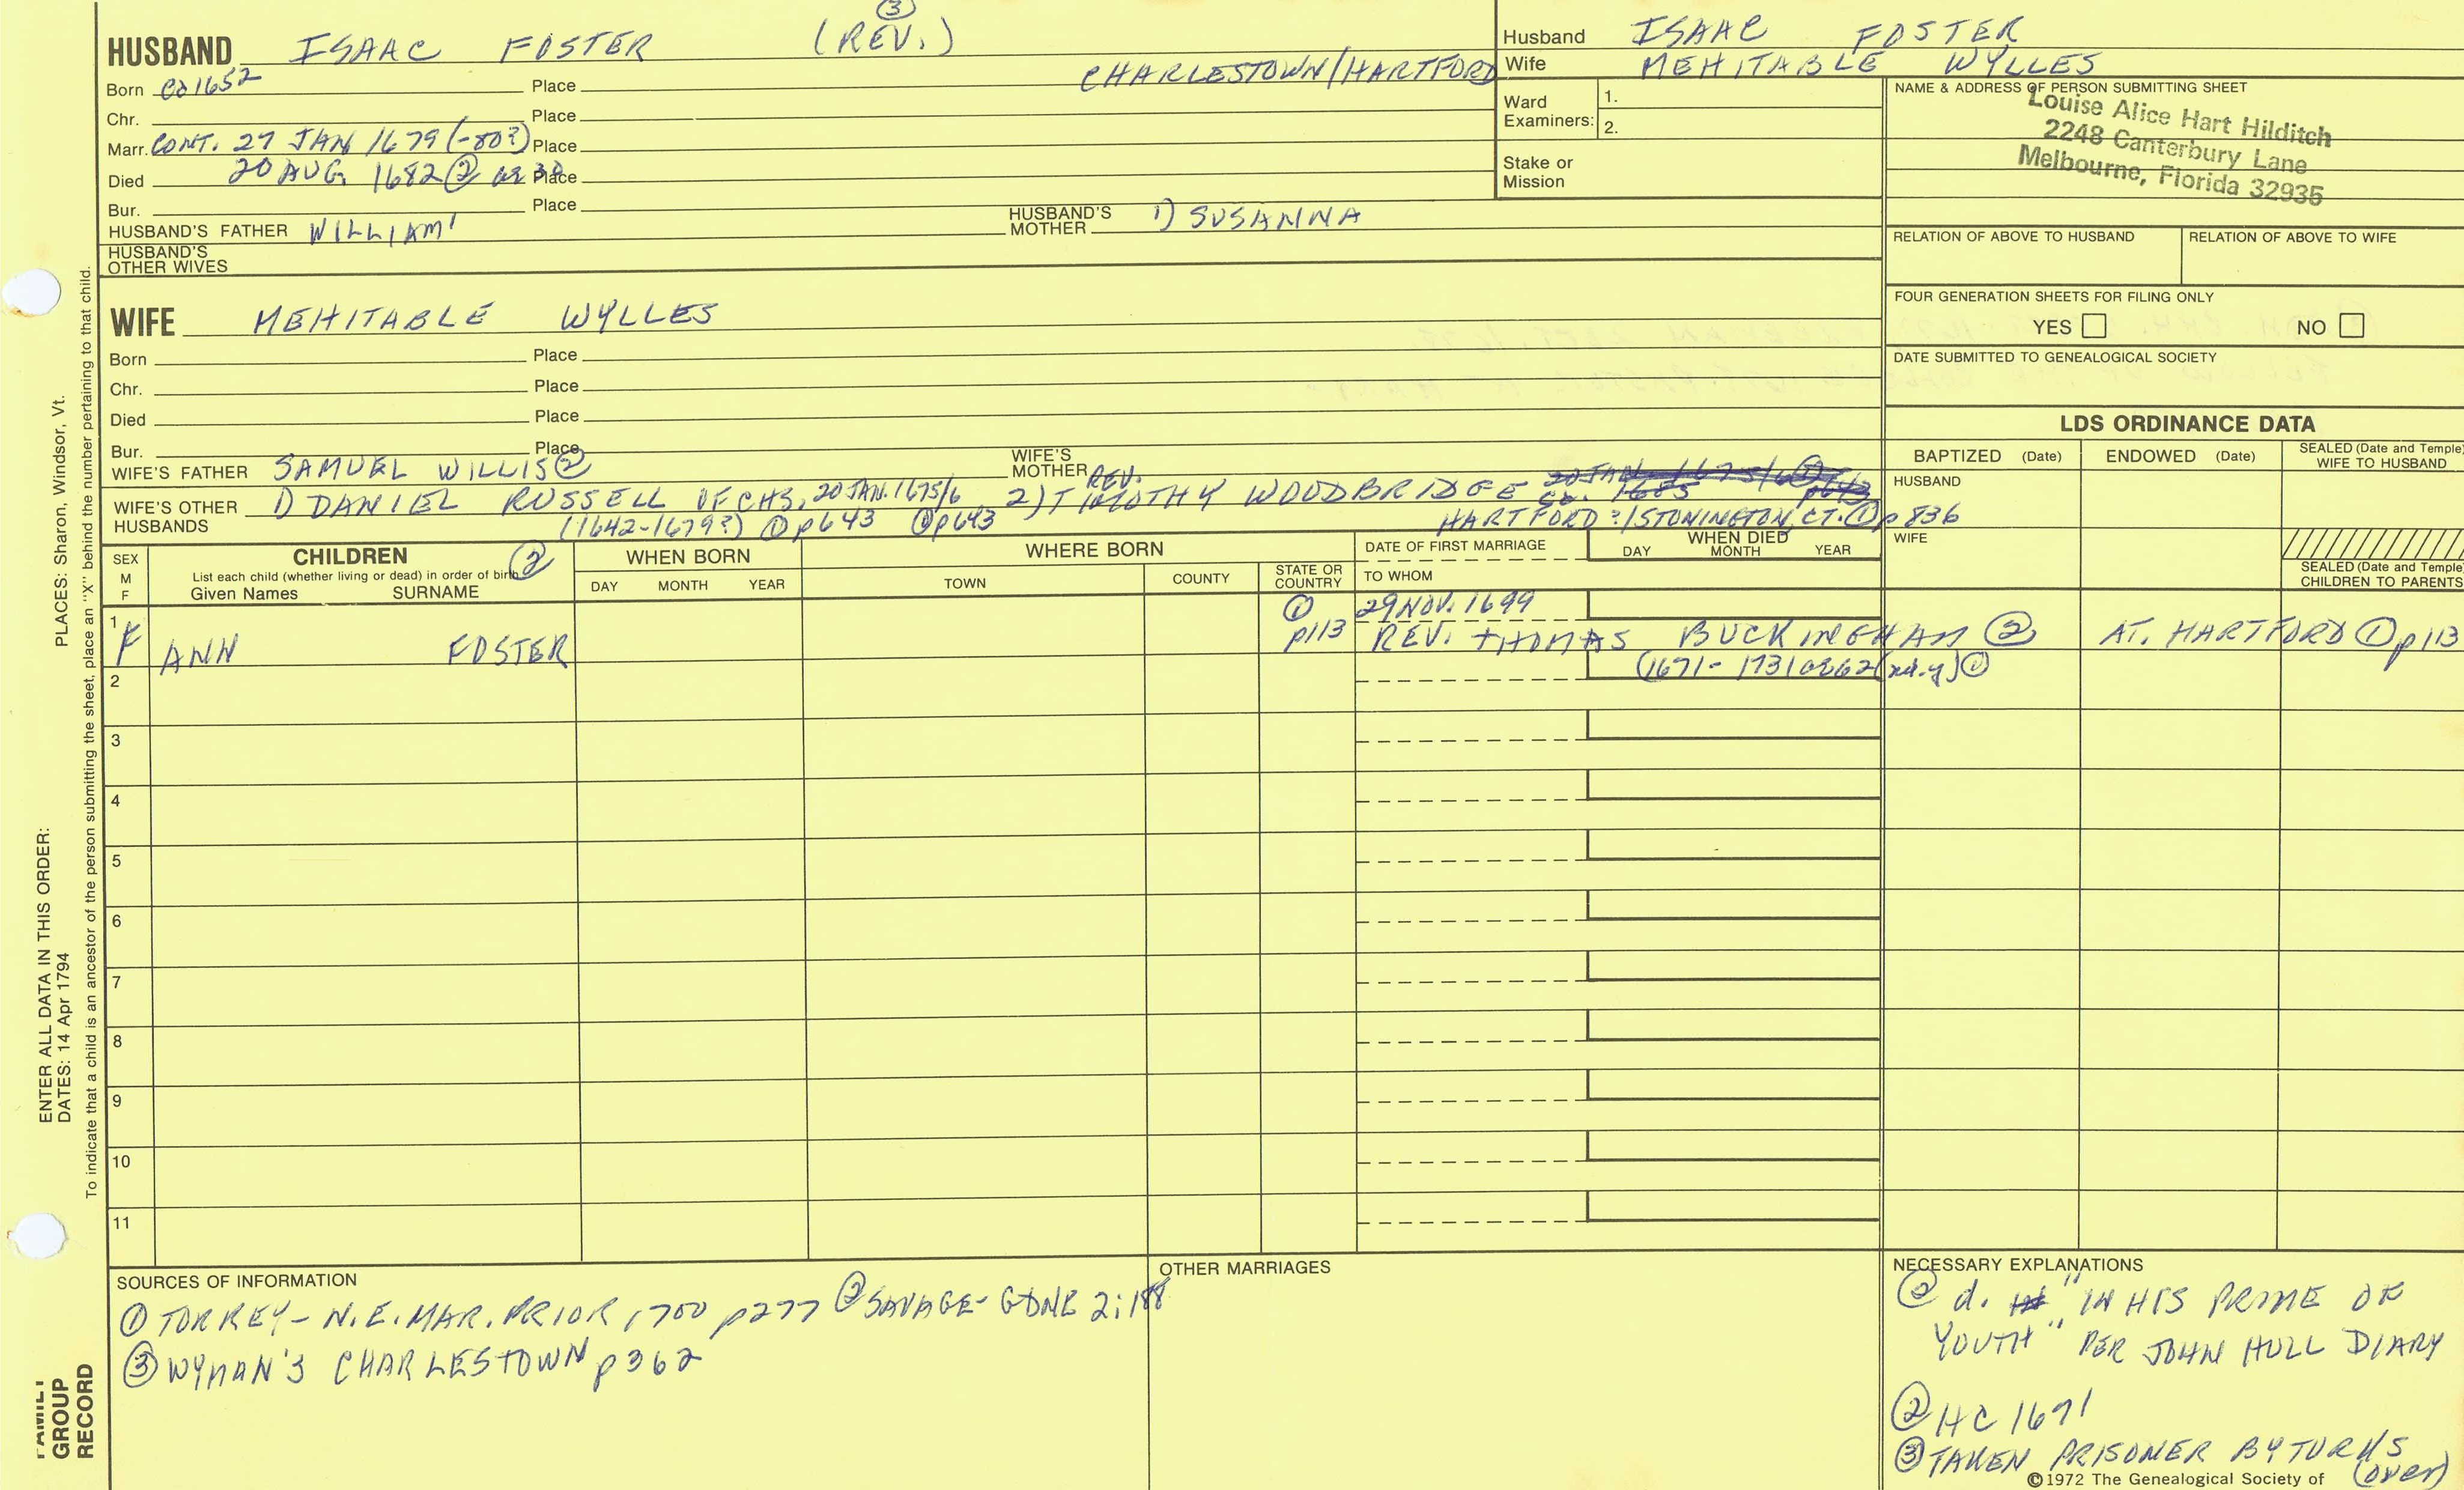 ③
HUSBAND ISAAC FOSTER (REV.)
CHARLESTOWN/HARTFORD
Born ca 1652 Place
Chr. Place
Marr. CONT. 27 JAN 1679 (-80?) Place
Died 20 AUG. 1682 ② ae 30 Place
Bur. Place
HUSBAND'S FATHER WILLIAM¹ HUSBAND'S MOTHER 1) SUSANNA
HUSBAND'S
OTHER WIVES
Husband ISAAC FOSTER
Wife MEHITABLE WYLLES
Ward
Examiners: 1.
2.
Stake or
Mission
NAME & ADDRESS OF PERSON SUBMITTING SHEET
Louise Alice Hart Hilditch
2248 Canterbury Lane
Melbourne, Florida 32935
RELATION OF ABOVE TO HUSBAND RELATION OF ABOVE TO WIFE
FOUR GENERATION SHEETS FOR FILING ONLY
YES NO
DATE SUBMITTED TO GENEALOGICAL SOCIETY
WIFE MEHITABLE WYLLES
Born Place
Chr. Place
Died Place
Bur. Place
WIFE'S FATHER SAMUEL WILLIS ② WIFE'S MOTHER
WIFE'S OTHER
HUSBANDS
1) DANIEL RUSSELL OF CHS, 20 JAN. 1675/6
(1642-1679?) ① p643 ① p643
REV.
2) TIMOTHY WOODBRIDGE 20 JAN 1675/6 p643
ca. 1685
HARTFORD?/STONINGTON, CT. ① p836
LDS ORDINANCE DATA
BAPTIZED (Date) ENDOWED (Date) SEALED (Date and Temple)
WIFE TO HUSBAND
HUSBAND
WIFE
SEALED (Date and Temple)
CHILDREN TO PARENTS
SEX
M
F
CHILDREN ②
List each child (whether living or dead) in order of birth
Given Names SURNAME
WHEN BORN
DAY MONTH YEAR
WHERE BORN
TOWN COUNTY STATE OR
COUNTRY
DATE OF FIRST MARRIAGE
TO WHOM
WHEN DIED
DAY MONTH YEAR
1 F ANN FOSTER
① p113
29 NOV. 1699
REV. THOMAS BUCKINGHAM ② AT. HARTFORD ① p113
(1671- 1731 ae 62 ①
2
3
4
5
6
7
8
9
10
11
SOURCES OF INFORMATION
① TORREY- N.E. MAR. PRIOR 1700 p277 ② SAVAGE- GDNE 2:188
③ WYMAN'S CHARLESTOWN p362
OTHER MARRIAGES
NECESSARY EXPLANATIONS
② d. "IN HIS PRIME OF
YOUTH" PER JOHN HULL DIARY
② HC 1671
③ TAKEN PRISONER BY TURKS
(over)
©1972 The Genealogical Society of
PLACES: Sharon, Windsor, Vt.
ENTER ALL DATA IN THIS ORDER:
DATES: 14 Apr 1794
To indicate that a child is an ancestor of the person submitting the sheet, place an "X" behind the number pertaining to that child.
FAMILY
GROUP
RECORD